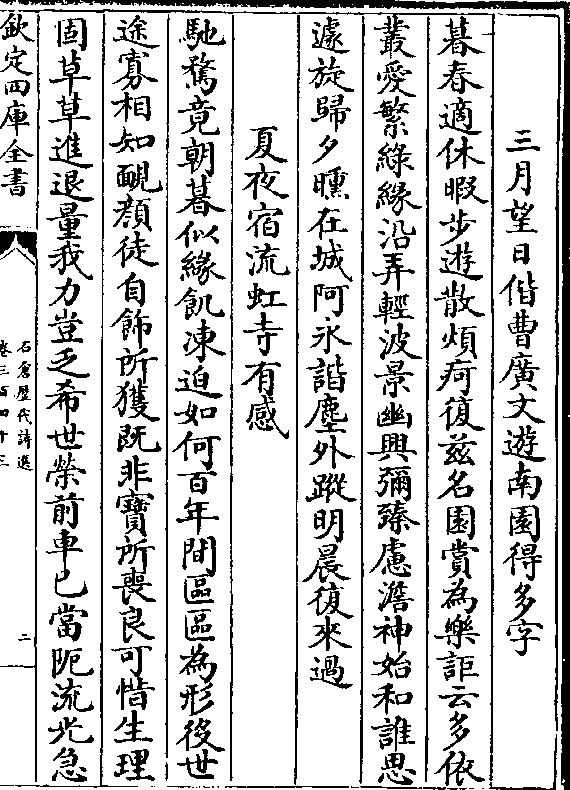 三月望日偕曹廣文遊南園得多字
暮春適休暇步遊散煩疴復兹名園賞為樂詎云多依
叢愛繁綠緣沿弄輕波景幽興彌臻慮澹神始和誰思
遽旋歸夕曛在城阿永諧塵外蹤明晨復來過
夏夜宿流虹寺有感
馳騖竟朝暮似緣飢凍迫如何百年間區區為形役世
途寡相知靦顔徒自飾所獲既非寶所喪良可惜生理
固草草進退量我力豈乏希世榮前車已當阨流光急
欽定四庫全書
石倉歴代詩選
卷三百四十三
二